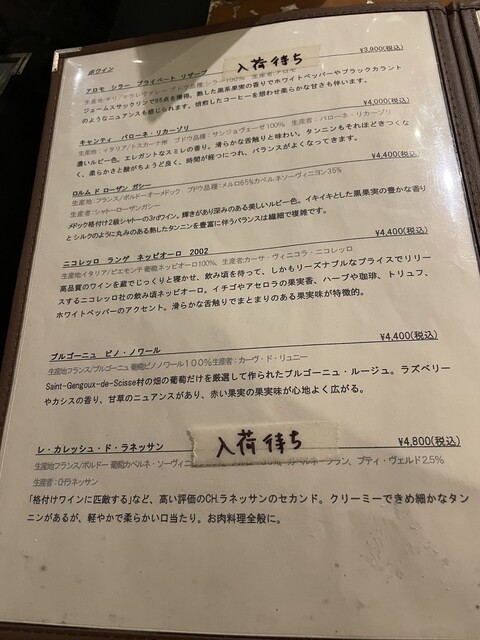 赤ワイン
入荷待ち
アロモ シラー プライベート リザーブ ¥3,900(税込)
生産地:チリ/マウレヴァレー ブドウ品種:シラー100% 生産者:アロモ
ジェームスサックリンで95点を獲得。熟した黒系果実の香りでホワイトペッパーやブラックカラント
のようなニュアンスも感じられます。焙煎したコーヒーを想わせ柔らかな甘さも伴います。
キャンティ バローネ・リカーゾリ ¥4,000(税込)
生産地:イタリア/トスカーナ州 ブドウ品種:サンジョヴェーゼ100% 生産者:バローネ・リカーゾリ
濃いルビー色。エレガントなスミレの香り。滑らかな舌触りと味わい。タンニンもそれほどきつくな
く、柔らかさと酸がちょうど良く、時間が経つにつれ、バランスがよくなってきます。
ロルム ド ローザン ガシー ¥4,400(税込)
生産地:フランス/ボルドーオーメドック ブドウ品種:メルロ65%カベルネソーヴィニヨン35%
生産者:シャトーローザンガシー
メドック格付け2級シャトーの3rdワイン。輝きがあり深みのある美しいルビー色。イキイキとした黒果実の豊かな香り
とシルクのように丸みのある熟したタンニンを豊富に伴うバランスは繊細で複雑です。
ニコレッロ ランゲ ネッビオーロ 2002 ¥4,400(税込)
生産地イタリア/ピエモンテ 葡萄ネッビオーロ100%、生産者:カーサ・ヴィニコラ・ニコレッロ
高品質のワインを蔵でじっくりと寝かせ、飲み頃を待って、しかもリーズナブルなプライスでリリー
スするニコレッロ社の飲み頃ネッビオーロ。イチゴやアセロラの果実香、ハーブや珈琲、トリュフ、
ホワイトペッパーのアクセント。滑らかな舌触りでまとまりのある果実味が特徴的。
ブルゴーニュ ピノ・ノワール ¥4,400(税込)
生産地フランス/ブルゴーニュ 葡萄ピノノワール100%生産者:カーヴ・ド・リュニー
Saint-Gengoux-de-Scisse村の畑の葡萄だけを厳選して作られたブルゴーニュ・ルージュ。ラズベリー
やカシスの香り、甘草のニュアンスがあり、赤い果実の果実味が心地よく広がる。
レ・カレッシュ・ド・ラネッサン ¥4,800(税込)
入荷待ち
生産地フランス/ボルドー 葡萄カベルネ・ソーヴィニ カベルネ・フラン、プティ・ヴェルド2.5%
生産者:Ch ラネッサン
「格付けワインに匹敵する」など、高い評価のCH.ラネッサンのセカンド。クリーミーできめ細かなタン
ニンがあるが、軽やかで柔らかい口当たり。お肉料理全般に。